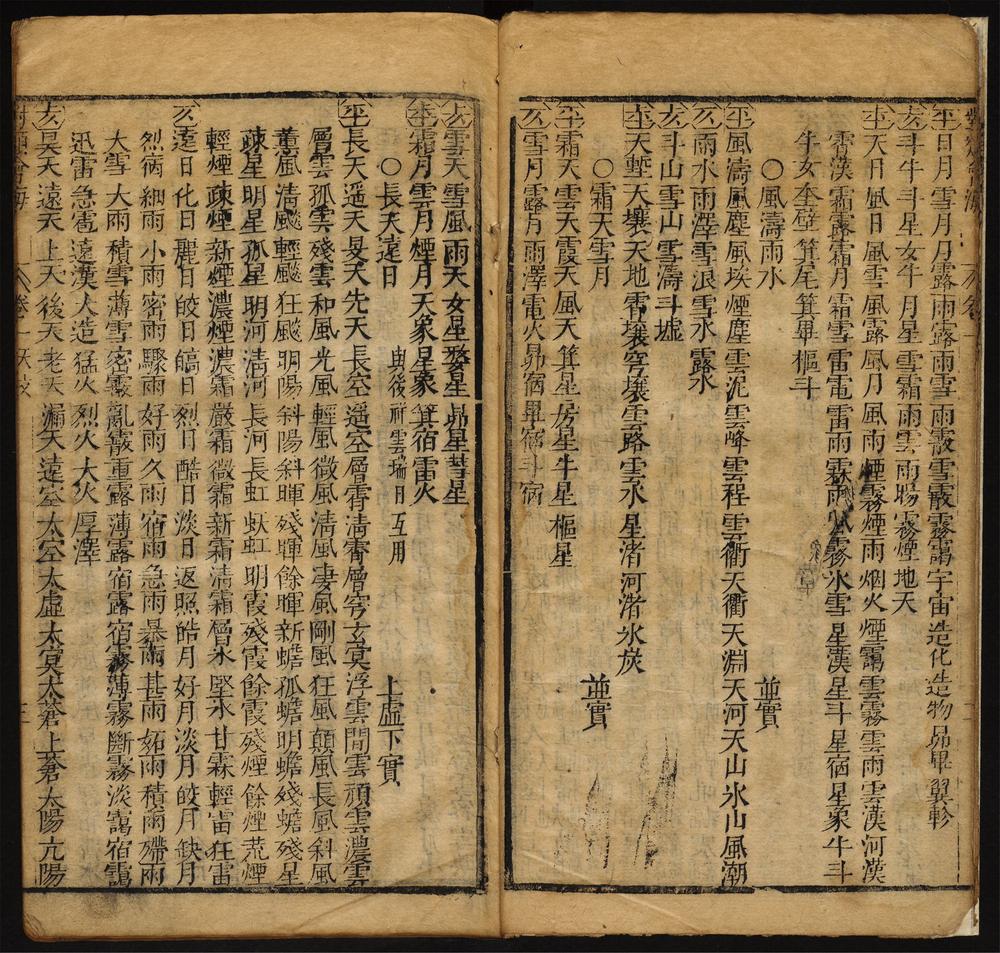 平日月雪月月露雨露雨雪雨霰雪霰霧靄宇宙造化造物昴畢翼軫
仄斗牛斗星女牛月星雪霜雨雲雨暘霧煙地天
平天日風日風雪風露風月風雨煙霧煙雨烟火煙靄雲霧雲雨雲漢河漢
霄漢霜露霜月霜雪雷電雷雨霖雨氷霧氷雪星漢星斗星宿星象牛斗
牛女奎壁箕尾箕畢樞斗
○風濤雨水 並實
平風濤風塵風埃煙塵雲泥雲峰雲程雲衢天衢天淵天河天山氷山風潮
仄雨水雨澤雪浪雪水露水
仄斗山雪山雪濤斗墟
平天塹天壤天地霄壤穹壤雲路雲水星渚河渚氷炭
○霜天雪月 並實
平霜天雲天霞天風天箕星房星牛星樞星
仄雪月露月雨澤電火昴宿畢宿斗宿
仄雪天雪風雨天女星婺星昴星彗星
平霜月雲月煙月天象星象箕宿雷火
○長天遠日 與後祥雲瑞日互用 上虛下實
平長天遥天旻天先天長空遥空層霄清霄層穹玄冥浮雲間雲頑雲濃雲
層雲孤雲殘雲和風光風輕風微風清風凄風剛風狂風顛風長風斜風
薰風清飈輕飈狂飈明陽斜陽斜暉殘暉餘暉新蟾孤蟾明蟾殘蟾殘星
疎星明星孤星明河清河長河長虹妖虹明霞殘霞餘霞殘煙餘煙荒煙
輕煙疎煙新煙濃煙濃霜嚴霜微霜新霜清霜層氷堅氷甘霖輕雷狂雷
仄遠日化日麗日皎日皜日烈日酷日淡日返照皓月好月淡月皎月缺月
烈雨細雨小雨密雨驟雨好雨久雨宿雨急雨暴雨甚雨妬雨積雨殢雨
大雪大雨積雪薄雪密霰亂霰重露薄露宿露宿霧薄霧斷霧淡靄宿靄
迅雷急雹遠漢人造猛火烈火大火厚澤
仄昊天遠天上天後天老天漏天遠空太空太虛太冥太蒼上蒼太陽亢陽